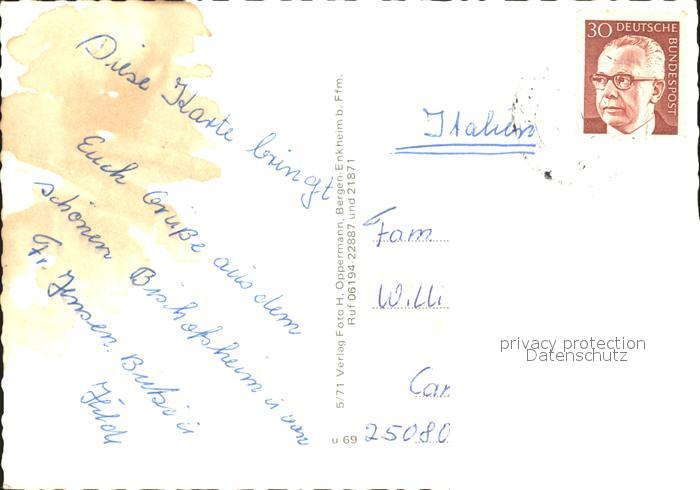 Diese Karte bringt
Euch Grüße aus dem
schönen Bischofsheim u. von
Fr. Jensen. Birki u
Hilde
5/71 Verlag Foto H. Oppermann, Bergen-Enkheim b. Ffm.
Ruf 06194-22887 und 21871
u 69
30 DEUTSCHE
BUNDESPOST
Italien
Fam
Willi
Car
25080
privacy protection
Datenschutz